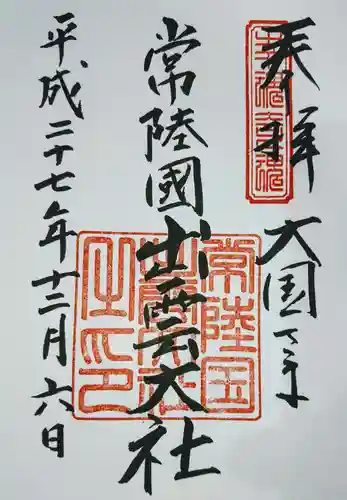 奉拝
大国主
常陸國出雲大社
平成二十七年十二月六日
常陸国
出雲大社
之印